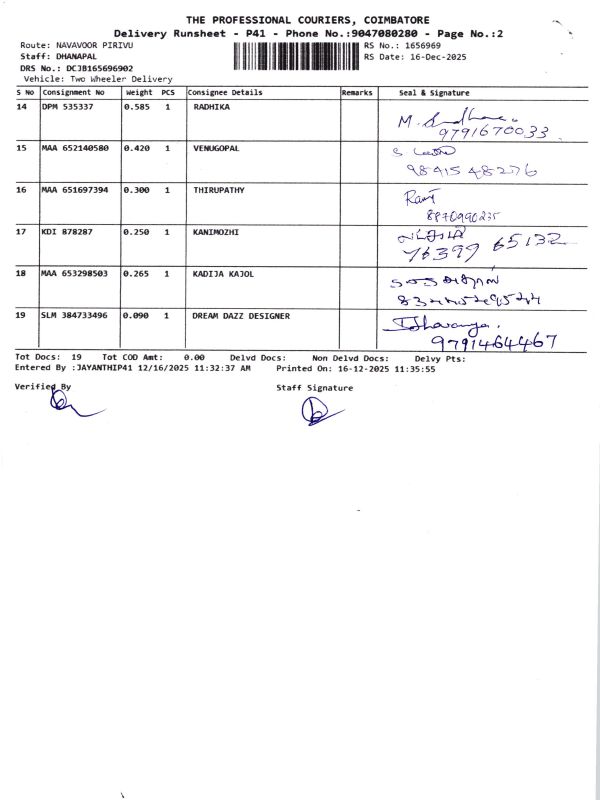 THE PROFESSIONAL COURIERS, COIMBATORE
Delivery Runsheet - P41 - Phone No.:9047080280 - Page No.:2
Route: NAVAVOOR PIRIVU RS No.: 1656969
Staff: DHANAPAL RS Date: 16-Dec-2025
DRS No.: DCJB165696902
Vehicle: Two Wheeler Delivery
S No Consignment No Weight PCS Consignee Details Remarks Seal & Signature
14 DPM 535337 0.585 1 RADHIKA
M.
9791670033
15 MAA 652140580 0.420 1 VENUGOPAL
S
9841548276
16 MAA 651697394 0.300 1 THIRUPATHY
Ravi
8870990235
17 KDI 878287 0.250 1 KANIMOZHI
76399 65132
18 MAA 653298503 0.265 1 KADIJA KAJOL
19 SLM 384733496 0.090 1 DREAM DAZZ DESIGNER
9791464467
Tot Docs: 19 Tot COD Amt: 0.00 Delvd Docs: Non Delvd Docs: Delvy Pts:
Entered By :JAYANTHIP41 12/16/2025 11:32:37 AM Printed On: 16-12-2025 11:35:55
Verified By Staff Signature